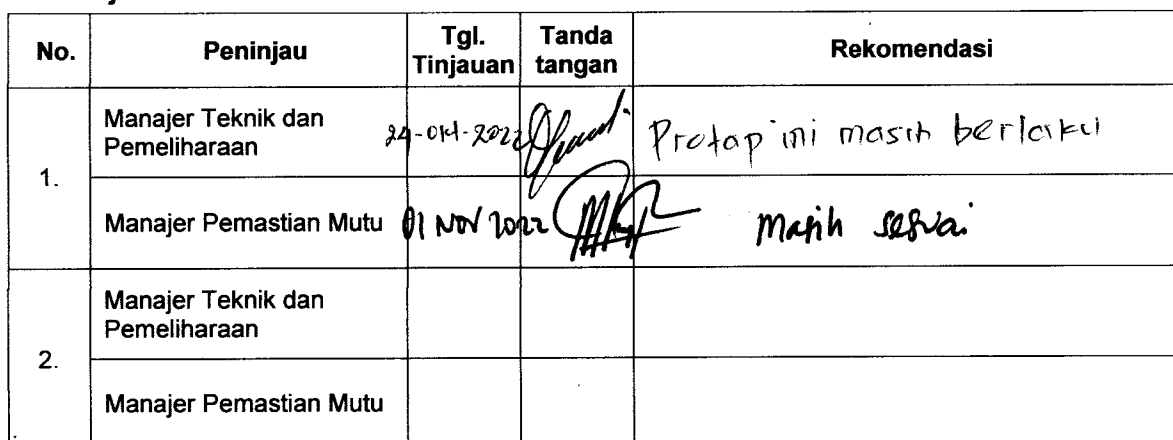 No. Peninjau Tgl. Tinjauan Tanda tangan Rekomendasi
1.
Manajer Teknik dan Pemeliharaan 24-Okt-2022 Protap ini masih berlaku
Manajer Pemastian Mutu 01 NOV 2022 Masih sesuai
2.
Manajer Teknik dan Pemeliharaan
Manajer Pemastian Mutu